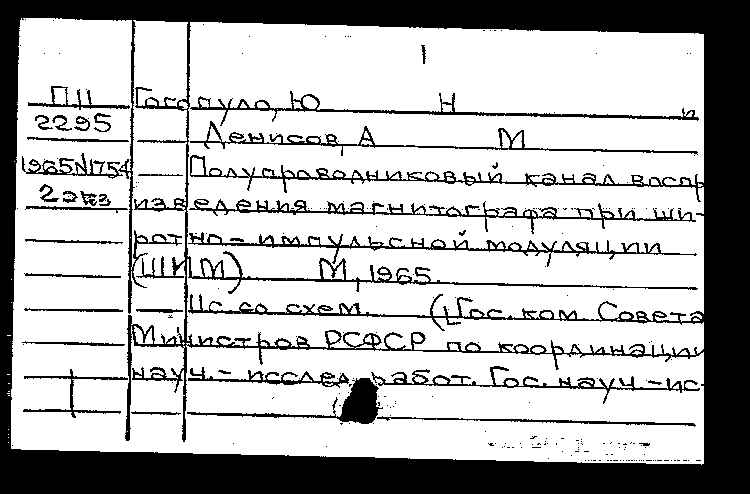 1
П11 Гогопуло, Ю Н и
2295 Денисов, А М
1965N1754 Полупроводниковый канал воспр
2 экз изведения магнитографа при ши-
ротно-импульсной модуляции
(ШИМ). М, 1965.
11с. со схем. (Гос. ком Совета
Министров РСФСР по координации
науч.- исслед. работ. Гос. науч.-ис-